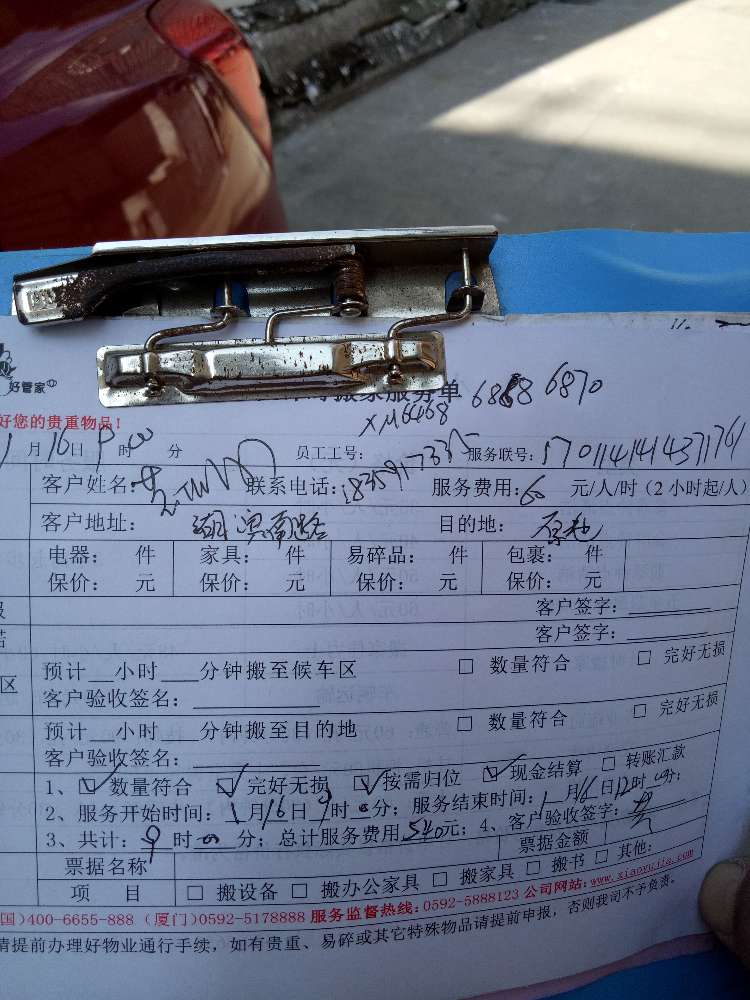 好管家
搬家服务单 6868 6870
好您的贵重物品!
XM6468
1月16日9时00分 员工工号: 服务联号:170114141437176
客户姓名: 联系电话: 服务费用:60 元/人/时(2小时起/人)
客户地址: 湖滨南路 目的地: 原地
电器: 件 家具: 件 易碎品: 件 包裹: 件
保价: 元 保价: 元 保价: 元 保价: 元
客户签字:
客户签字:
区 预计__小时___分钟搬至候车区 □ 数量符合 □ 完好无损
客户验收签名:
预计__小时___分钟搬至目的地 □ 数量符合 □ 完好无损
客户验收签名:
1、☑数量符合 ☑完好无损 ☑按需归位 ☑现金结算 □ 转账汇款
2、服务开始时间:1月16日9时0分;服务结束时间:1月16日12时00分;
3、共计:9时0分;总计服务费用540元;4、客户验收签字:
票据名称 票据金额
项 目 □ 搬设备 □ 搬办公家具 □ 搬家具 □ 搬书 □ 其他:
国)400-6655-888 (厦门)0592-5178888 服务监督热线:0592-5888123 公司网站:www.xiaoyujia.com
请提前办理好物业通行手续,如有贵重、易碎或其它特殊物品请提前申报,否则我司不予负责。